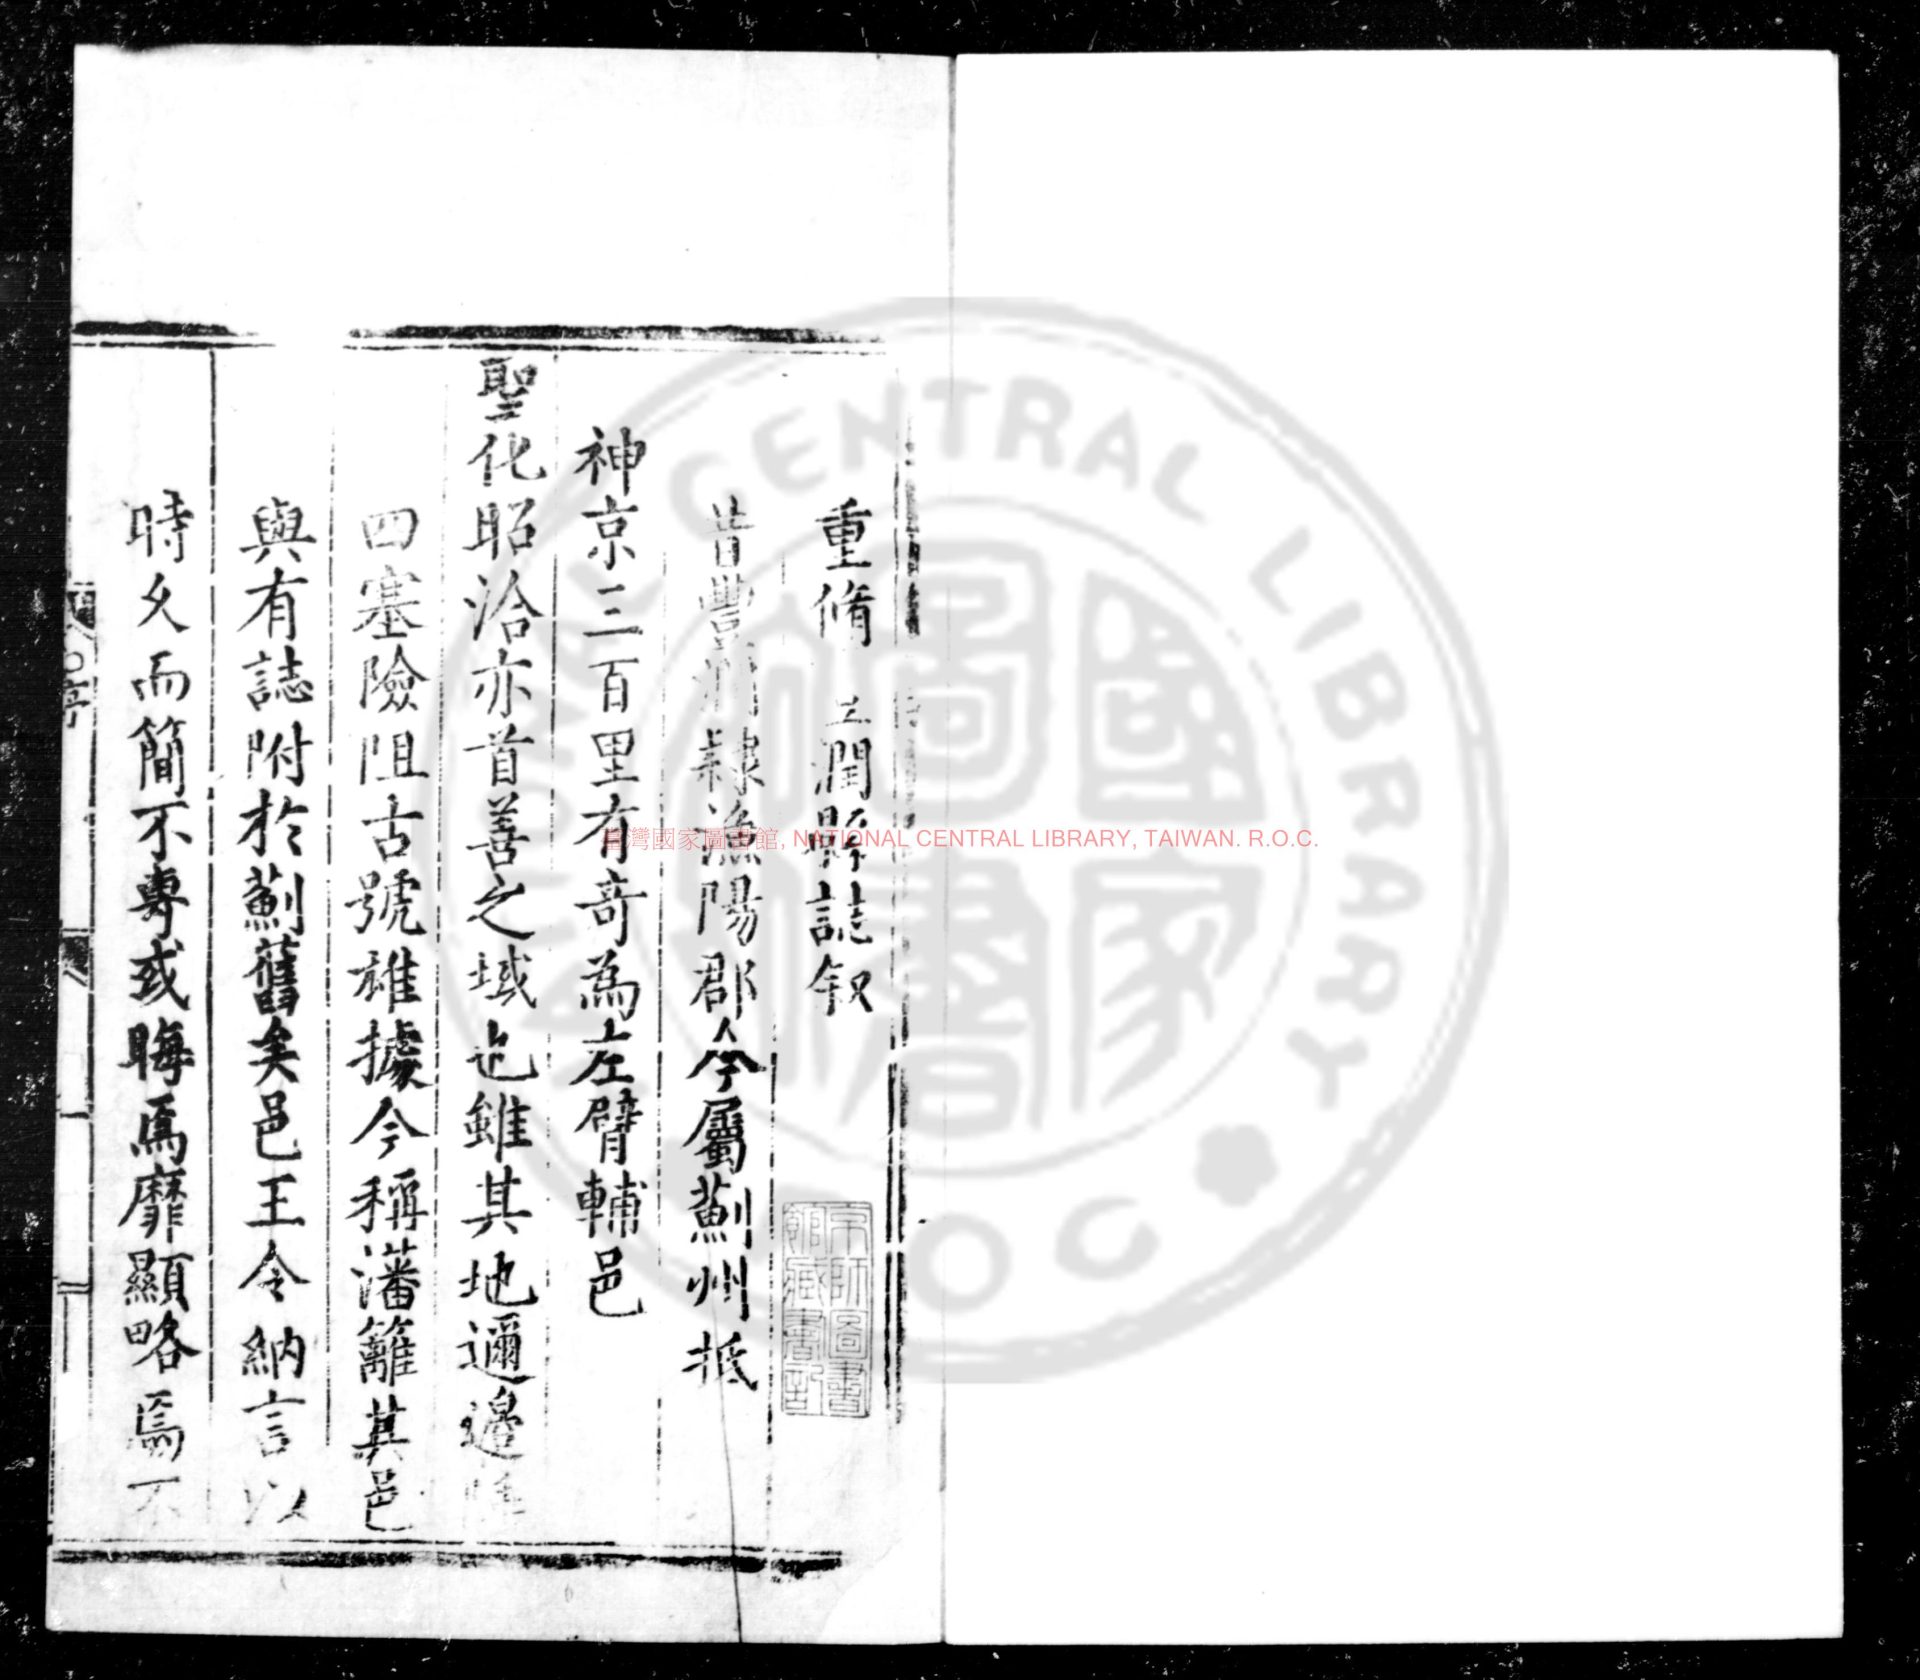 重脩豊潤縣誌叙
昔豐潤隷漁陽郡今屬薊州抵
神京三百里有竒為左臂輔邑
聖化昭洽亦首善之域也雖其地邇邉
四塞險阻古號雄據今稱藩籬其邑
與有誌附於薊舊矣邑王令納言以
時久而簡不專或晦焉靡顯略焉不
序
京師圖書
館藏書記
臺灣國家圖書館, NATIONAL CENTRAL LIBRARY, TAIWAN. R.O.C.
NATIONAL CENTRAL LIBRARY
R.O.C
國家
圖書